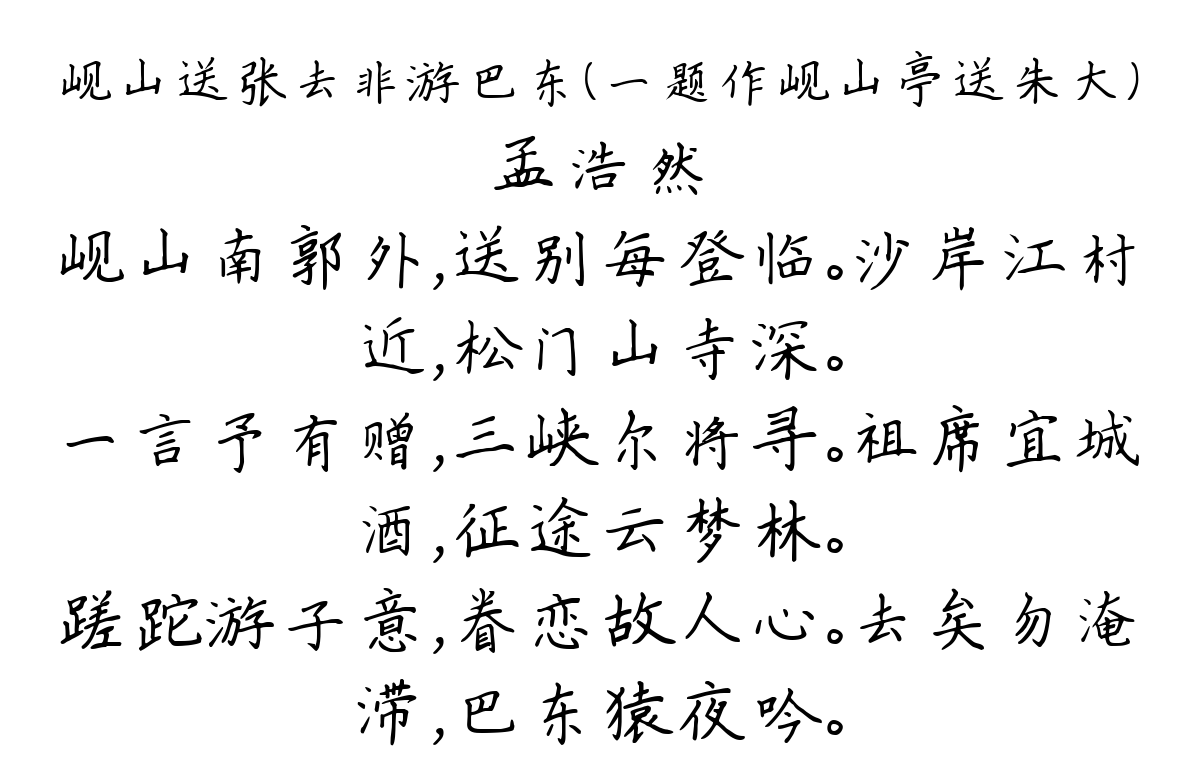 岘山送张去非游巴东(一题作岘山亭送朱大)
孟浩然
岘山南郭外,送别每登临。沙岸江村
近,松门山寺深。
一言予有赠,三峡尔将寻。祖席宜城
酒,征途云梦林。
蹉跎游子意,眷恋故人心。去矣勿淹
滞,巴东猿夜吟。